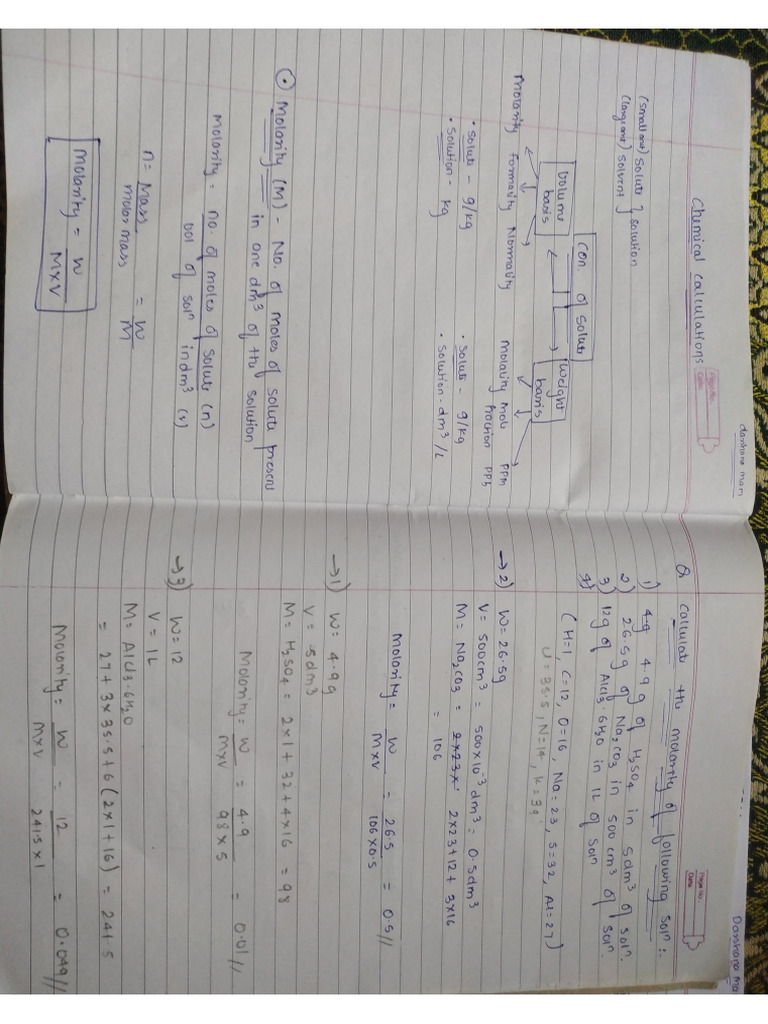 Darshana mam
Page No.
Date
Chemical calculations
(small amt) Solute } solution
(large amt) Solvent
Con. of Solute
Volume basis
Weight basis
Molarity Formality Normality
Molality Mole fraction PPM PPb
• Solute - g/kg
• Solution - kg
• Solute - g/kg
• Solution - dm³/L
⊙ Molarity (M) - No. of moles of solute present
in one dm³ of the solution
Molarity = no. of moles of solute (n)
vol of solⁿ in dm³ (v)
n = Mass = W
molar mass M
Molarity = W
M×V
Darshana ma
Page No.
Date
Q. Calculate the molarity of following solⁿ :-
1) 4.9g of H₂SO₄ in 5dm³ of solⁿ.
2) 26.5g of Na₂CO₃ in 500 cm³ of solⁿ
3) 12g of AlCl₃·6H₂O in 1L of solⁿ
(H=1, C=12, O=16, Na=23, S=32, Al=27,
Cl=35.5, N=14, K=39)
→ 2) W = 26.5g
V = 500cm³ = 500×10⁻³dm³ = 0.5dm³
M = Na₂CO₃ = 2×23+12+3×16
= 106
Molarity = W = 26.5 = 0.5//
M×V 106×0.5
→ 1) W = 4.9g
V = 5dm³
M = H₂SO₄ = 2×1+32+4×16 = 98
Molarity = W = 4.9 = 0.01//
M×V 98×5
→ 3) W = 12
V = 1L
M = AlCl₃·6H₂O
= 27+3×35.5+6(2×1+16) = 241.5
Molarity = W = 12 = 0.049//
M×V 241.5×1